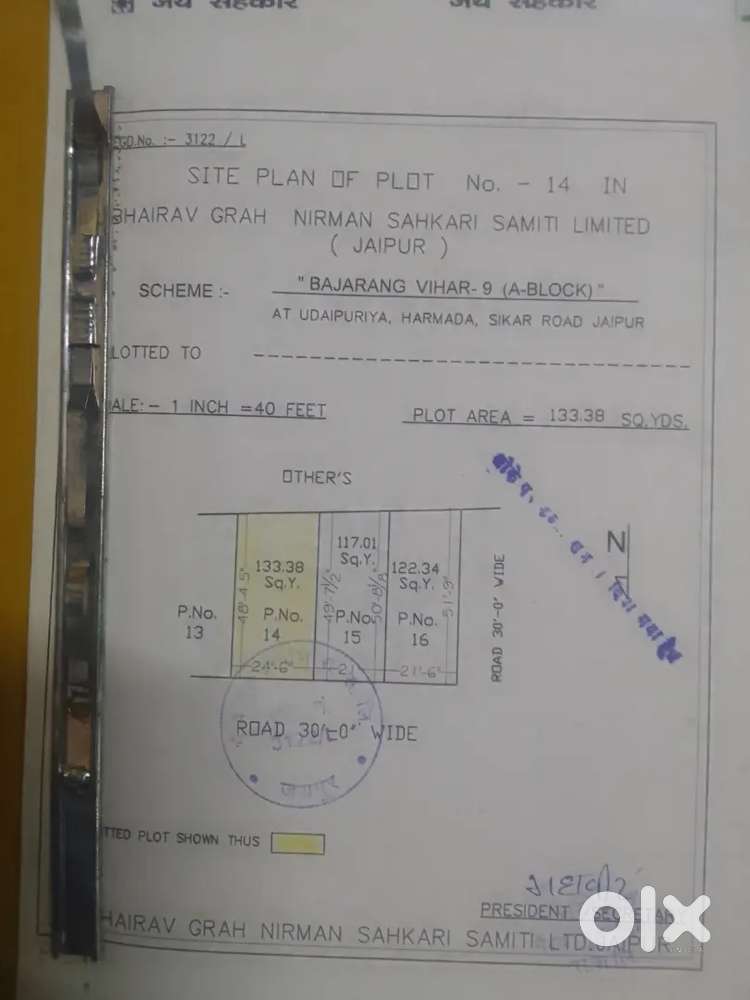 जय सहकार जय सहकार
EGD.No. :- 3122 / L
SITE PLAN OF PLOT No. - 14 IN
BHAIRAV GRAH NIRMAN SAHKARI SAMITI LIMITED
( JAIPUR )
SCHEME :- " BAJARANG VIHAR- 9 (A-BLOCK) "
AT UDAIPURIYA, HARMADA, SIKAR ROAD JAIPUR
LOTTED TO
ALE: - 1 INCH =40 FEET
PLOT AREA = 133.38 SQ.YDS.
OTHER'S
N
P.No.
13
133.38
Sq.Y.
P.No.
14
48'-4.5"
24'-6"
117.01
Sq.Y.
P.No.
15
49'-7½"
21'
122.34
Sq.Y.
P.No.
16
21'-6"
51'-9"
ROAD 30'-0" WIDE
ROAD 30'-0" WIDE
जयपुर
TTED PLOT SHOWN THUS
PRESIDENT SECRETARY
HAIRAV GRAH NIRMAN SAHKARI SAMITI LTD. JAIPUR
olx